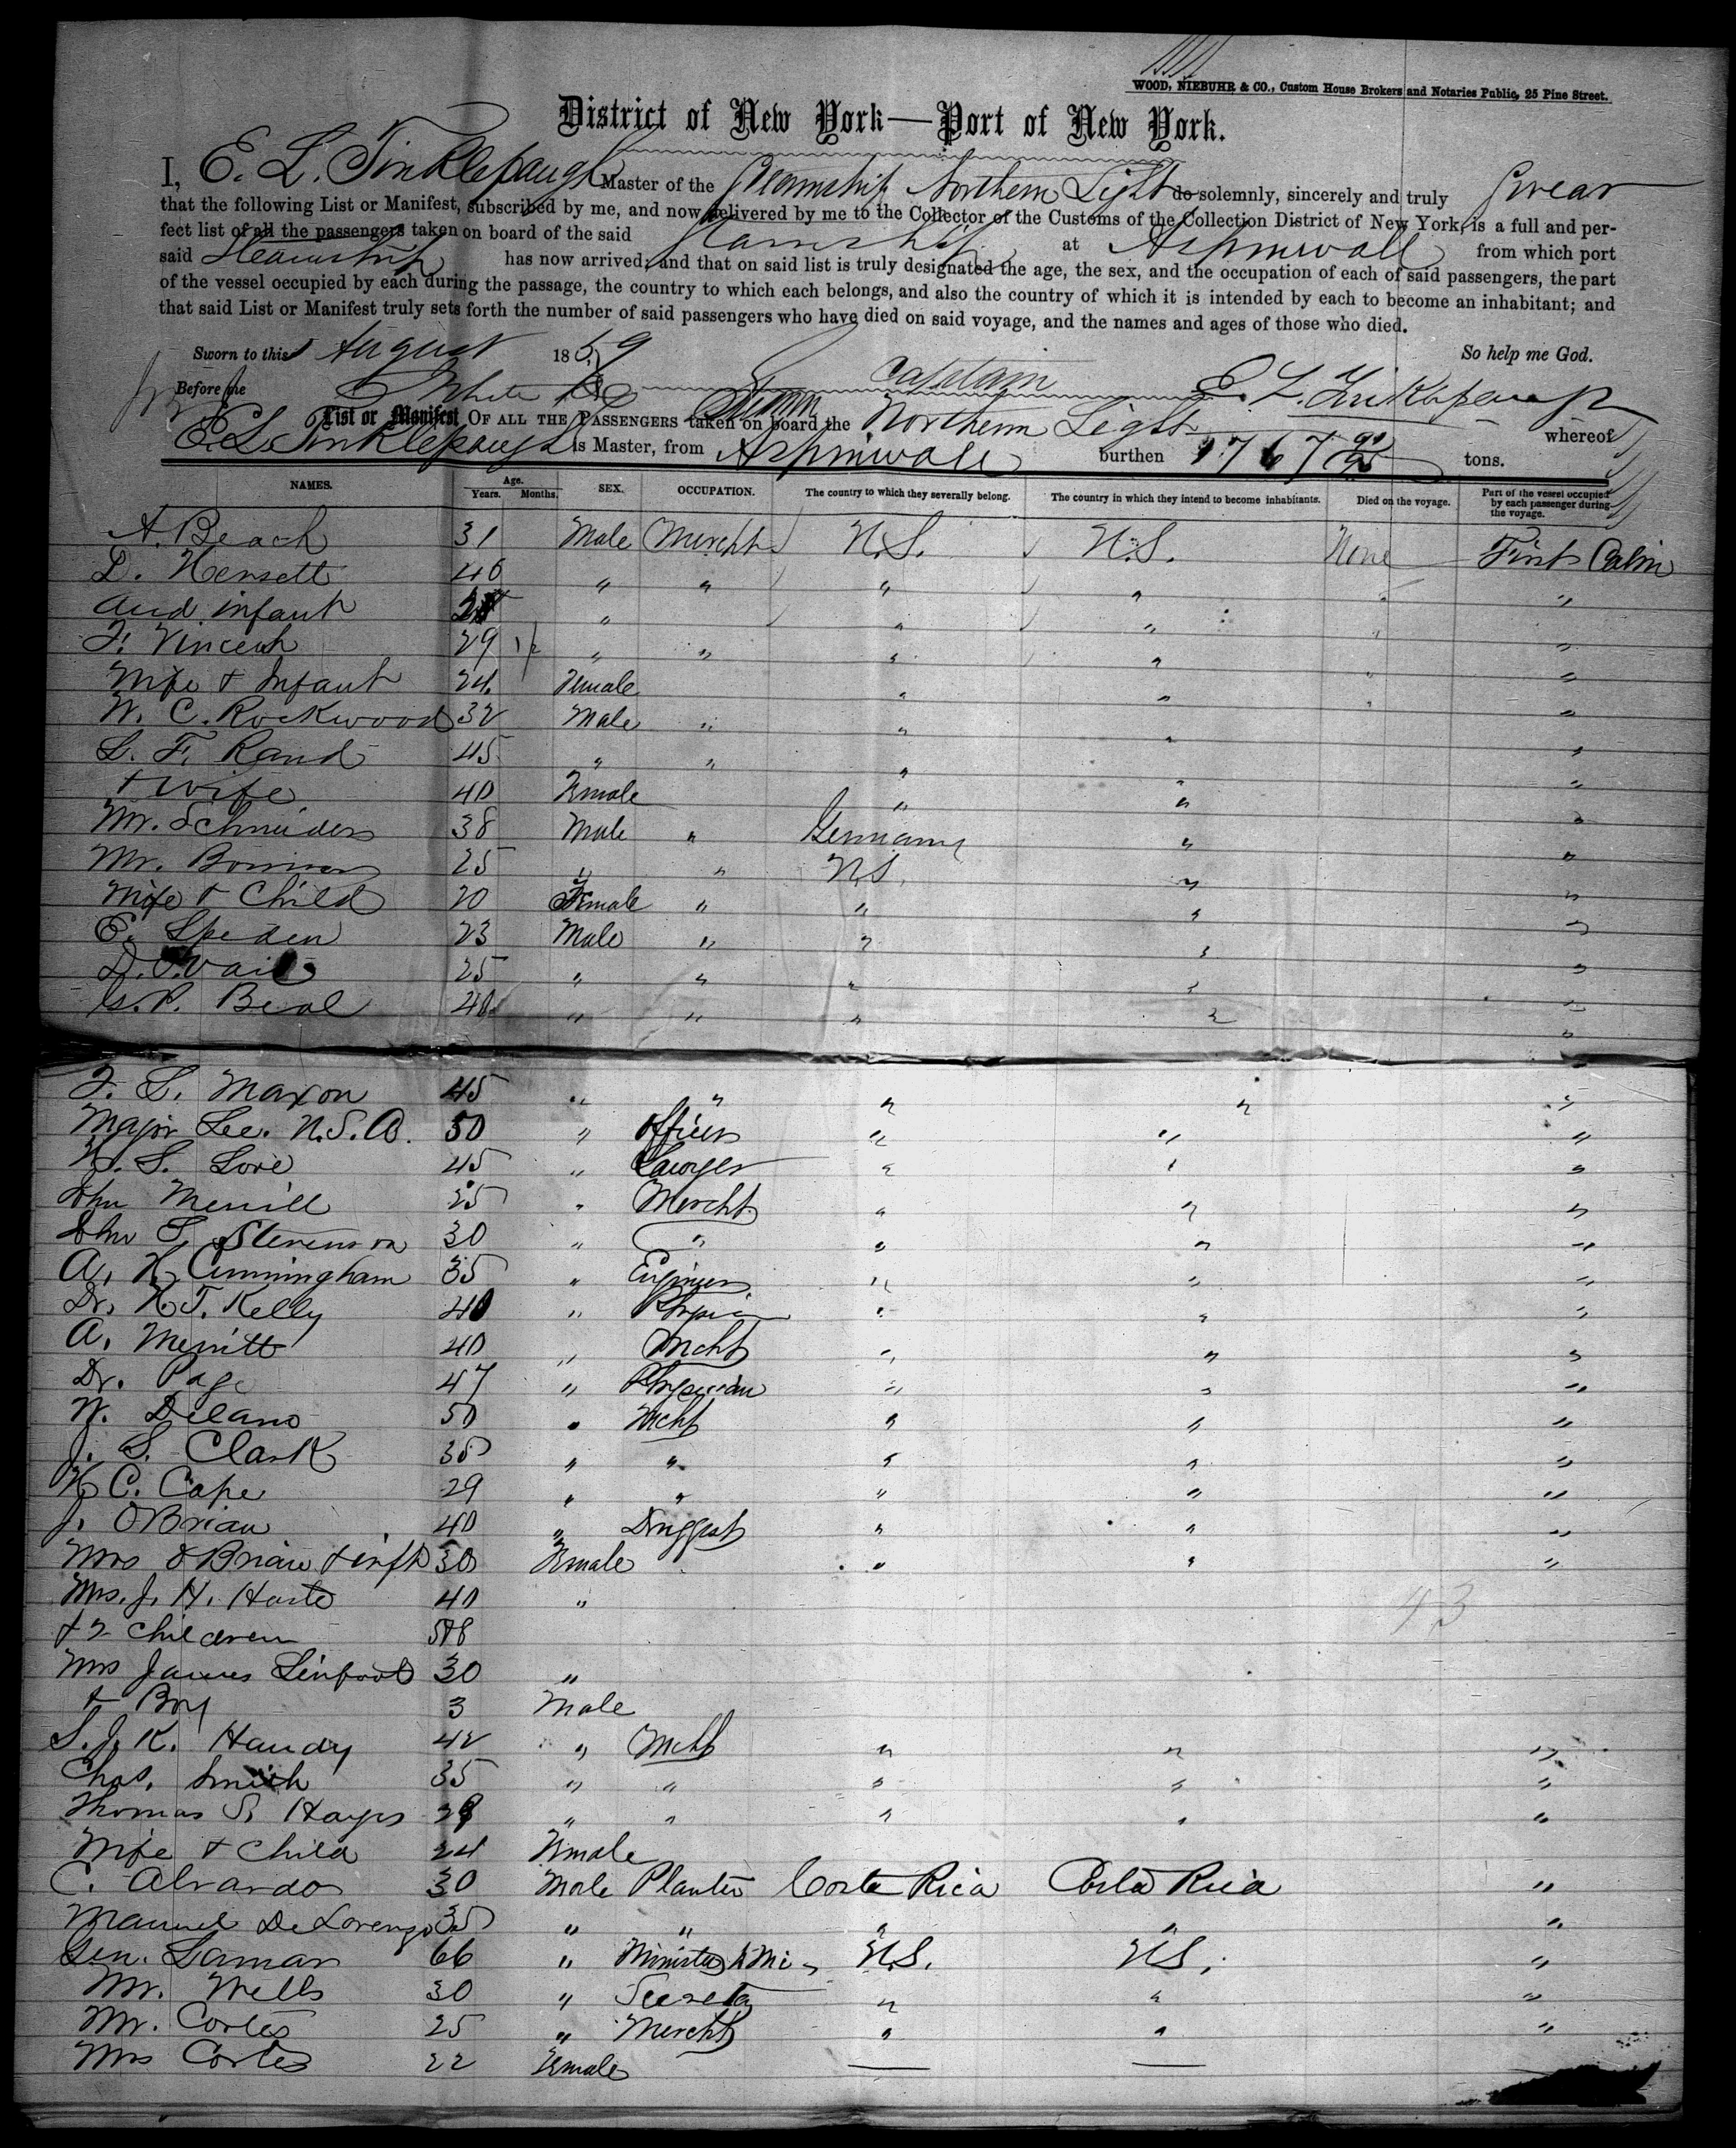 WOOD, NIEBUHR & CO., Custom House Brokers and Notaries Public, 25 Pine Street.
District of New York—Port of New York.
I, E. L. Tinklepaugh Master of the Steamship Northern Light do solemnly, sincerely and truly swear
that the following List or Manifest, subscribed by me, and now delivered by me to the Collector of the Customs of the Collection District of New York, is a full and per-
fect list of all the passengers taken on board of the said Steamship at Aspinwall from which port
said Steamship has now arrived; and that on said list is truly designated the age, the sex, and the occupation of each of said passengers, the part
of the vessel occupied by each during the passage, the country to which each belongs, and also the country of which it is intended by each to become an inhabitant; and
that said List or Manifest truly sets forth the number of said passengers who have died on said voyage, and the names and ages of those who died.
Sworn to this August 1859 So help me God.
Before me White Captain E. L. Tinklepaugh
List or Manifest OF ALL THE PASSENGERS taken on board the Steam Northern Light whereof
E L Tinklepaugh is Master, from Aspinwall burthen 1767 91/95 tons.
NAMES. Age. Years. Months. SEX. OCCUPATION. The country to which they severally belong. The country in which they intend to become inhabitants. Died on the voyage. Part of the vessel occupied by each passenger during the voyage.
A. Beach 31 Male Mercht U.S. U.S. None First Cabin
D. Hensett 40 " " " " "
and infant " " " "
F. Vincent 29 " " " " "
Wife & Infant 24 Female " " "
W. C. Rockwood 32 Male " " " "
L. F. Rand 45 " " " " "
& Wife 40 Female " " "
Mr. Schneider 38 Male " Germany " "
Mr. 25 " " U.S. " "
Wife & Child 20 Female " " " "
E. Speden 23 Male " " " "
D. Vail 25 " " " " "
G. P. Beal 40 " " " " "
F. L. Maxon 45 " " " " "
Major Lee. U.S.A. 50 " Officer " " "
H. S. Love 45 " Lawyer " " "
John Merrill 25 " Mercht " " "
John S. Stevenson 30 " " " " "
A. H. Cunningham 35 " Engineer " " "
Dr. H. T. Kelly 40 " Physic " " "
A. Merritt 40 " Mcht " " "
Dr. Page 47 " Physician " " "
W. Delano 50 " Mcht " " "
J. S. Clark 35 " " " " "
H C. Cape 29 " " " " "
J. OBrian 40 " Druggist " " "
Mrs OBrian & inft 30 Female " " "
Mrs. J. H. Harte 40 " 43
& 2 Children 5 & 8
Mrs James Linfoot 30 "
& Boy 3 Male
S. J. K. Handy 42 " Mcht " " "
Chas. Smith 35 " " " " "
Thomas S. Hayes 29 " " " " "
Wife & Child 24 Female
C. Alvardo 30 Male Planter Costa Rica Costa Rica "
Manuel De Lorenzo 35 " " " " "
Gen. Lamar 66 " Minister U.S. U.S. "
Mr. Wells 30 " Secreta " " "
Mr. Cortes 25 " Mercht " " "
Mrs Cortes 22 Female — —